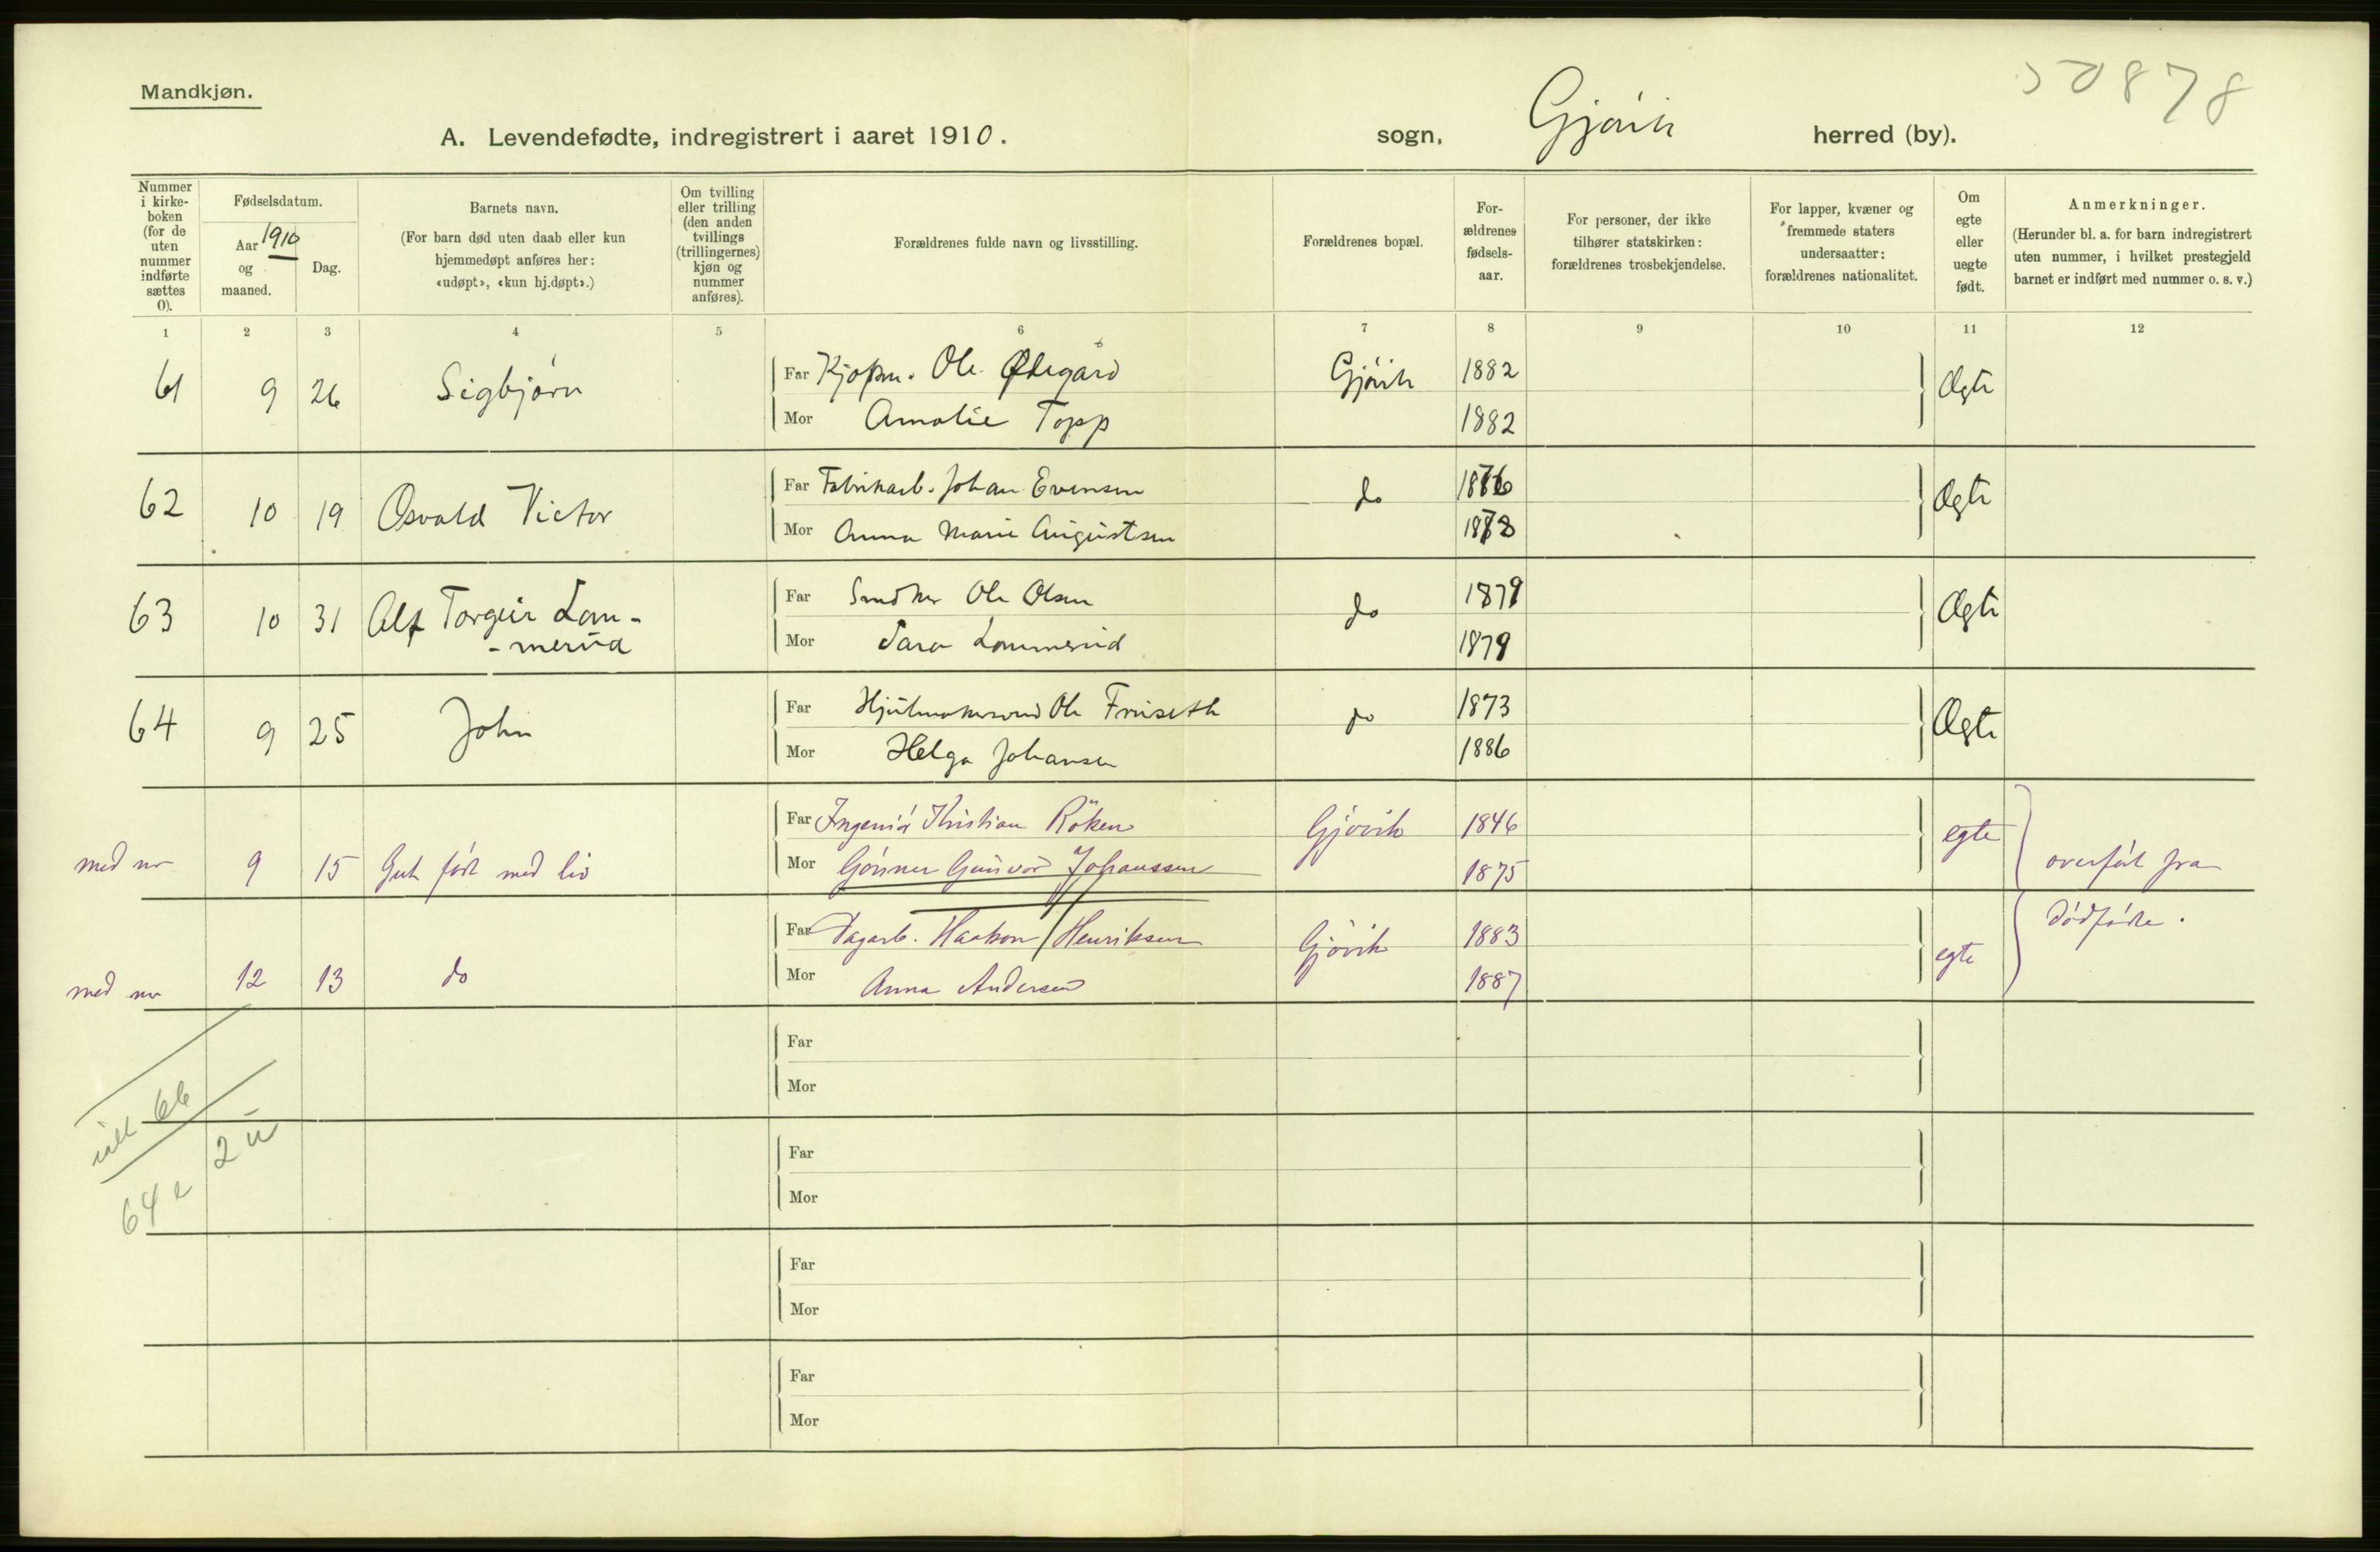 Mandkjøn.
50878
A. Levendefødte, indregistrert i aaret 1910.
sogn, Gjøvik herred (by).
Nummer i kirke-boken (for de uten nummer indførte sættes 0).
Fødselsdatum.
Aar 1910 og maaned.
Dag.
Barnets navn.
(For barn død uten daab eller kun hjemmedøpt anføres her: «udøpt», «kun hj.døpt».)
Om tvilling eller trilling (den anden tvillings (trillingernes) kjøn og nummer anføres).
Forældrenes fulde navn og livsstilling.
Forældrenes bopæl.
For-ældrenes fødsels-aar.
For personer, der ikke tilhører statskirken: forældrenes trosbekjendelse.
For lapper, kvæner og fremmede staters undersaatter: forældrenes nationalitet.
Om egte eller uegte født.
Anmerkninger.
(Herunder bl. a. for barn indregistrert uten nummer, i hvilket prestegjeld barnet er indført med nummer o. s. v.)
1 2 3 4 5 6 7 8 9 10 11 12
61 9 26 Sigbjørn Far Kjøpm. Ole Ødegård Gjøvik 1882 Ægte
Mor Amalie Topp 1882
62 10 19 Osvald Victor Far Fabrikarb. Johan Evensen do 1876 Ægte
Mor Anna Marie Augustsen 1878
63 10 31 Alf Torgeir Lom-
-merud
Far Snedker Ole Olsen do 1879 Ægte
Mor Sara Lommerud 1879
64 9 25 John Far Hjulmakersvend Ole Fruseth do 1873 Ægte
Mor Helga Johansen 1886
med nr 9 15 Gut født med liv Far Ingeniör Kristian Röken Gjøvik 1846 egte overført fra
Mor Gunvor Johanssen 1875
med nr 12 13 do Far Dagarb. Haakon Henriksen Gjøvik 1883 egte Dødfødte.
Mor Anna Andersen 1887
Far
Mor
66
2 u
64
Far
Mor
Far
Mor
Far
Mor